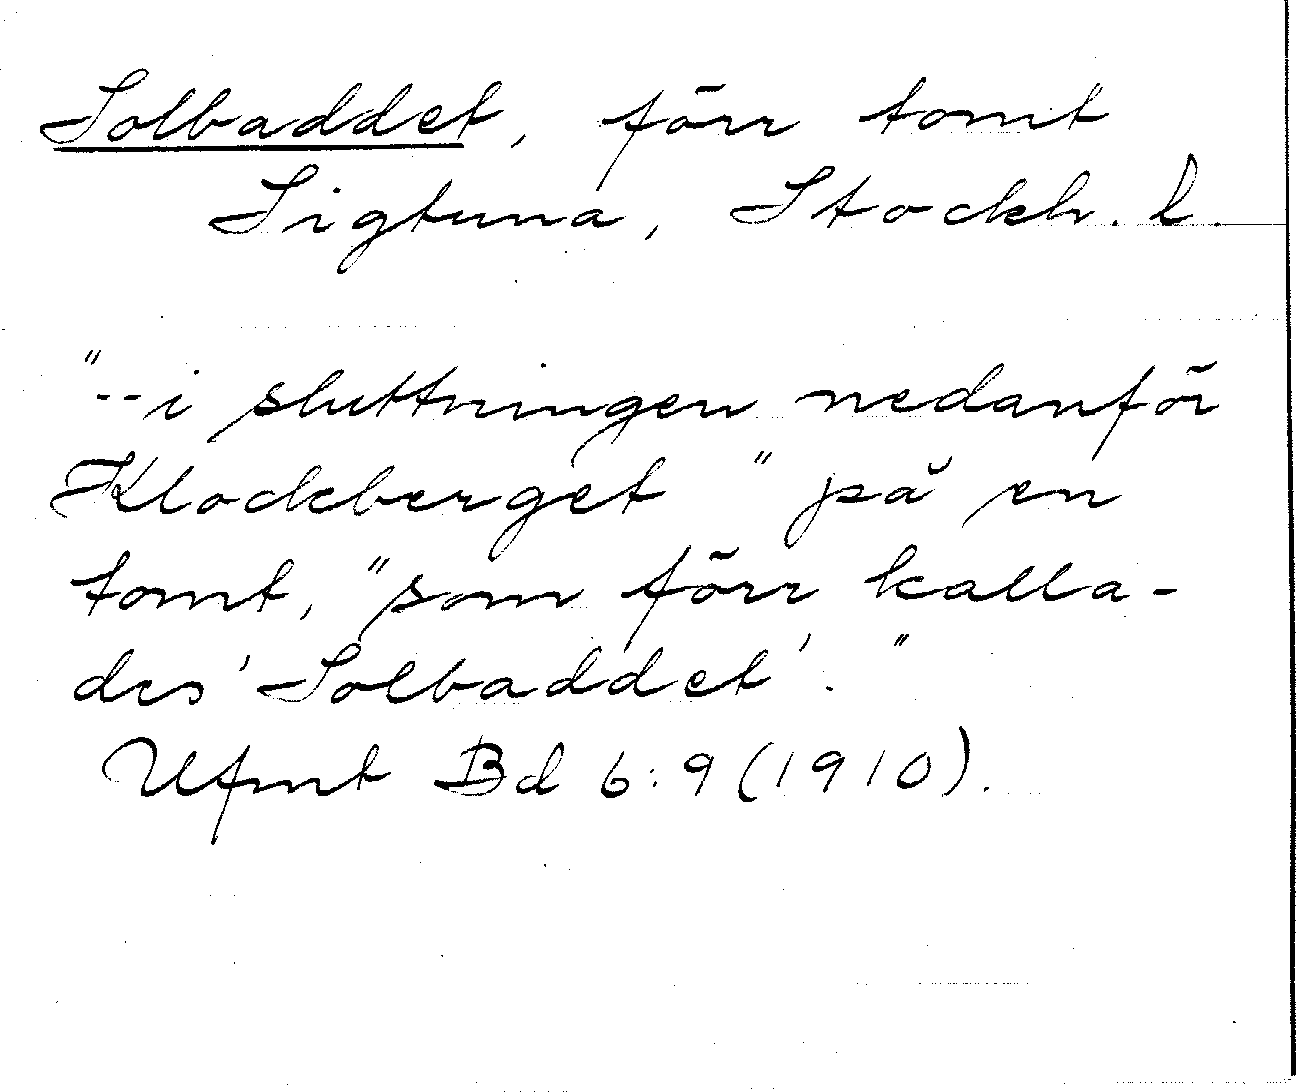 Solbaddet, förr tomt
Sigtuna, Stockh. l.
"--i sluttningen nedanför
Klockberget" på en
tomt, "som förr kalla-
des 'Solbaddet'."
Ufmt Bd 6:9 (1910).